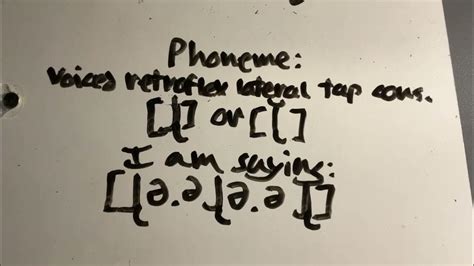 Phoneme:
Voiced retroflex lateral tap cons.
[𝼈] or
I am saying:
[𝼈ə.ə𝼈ə.ə𝼈]